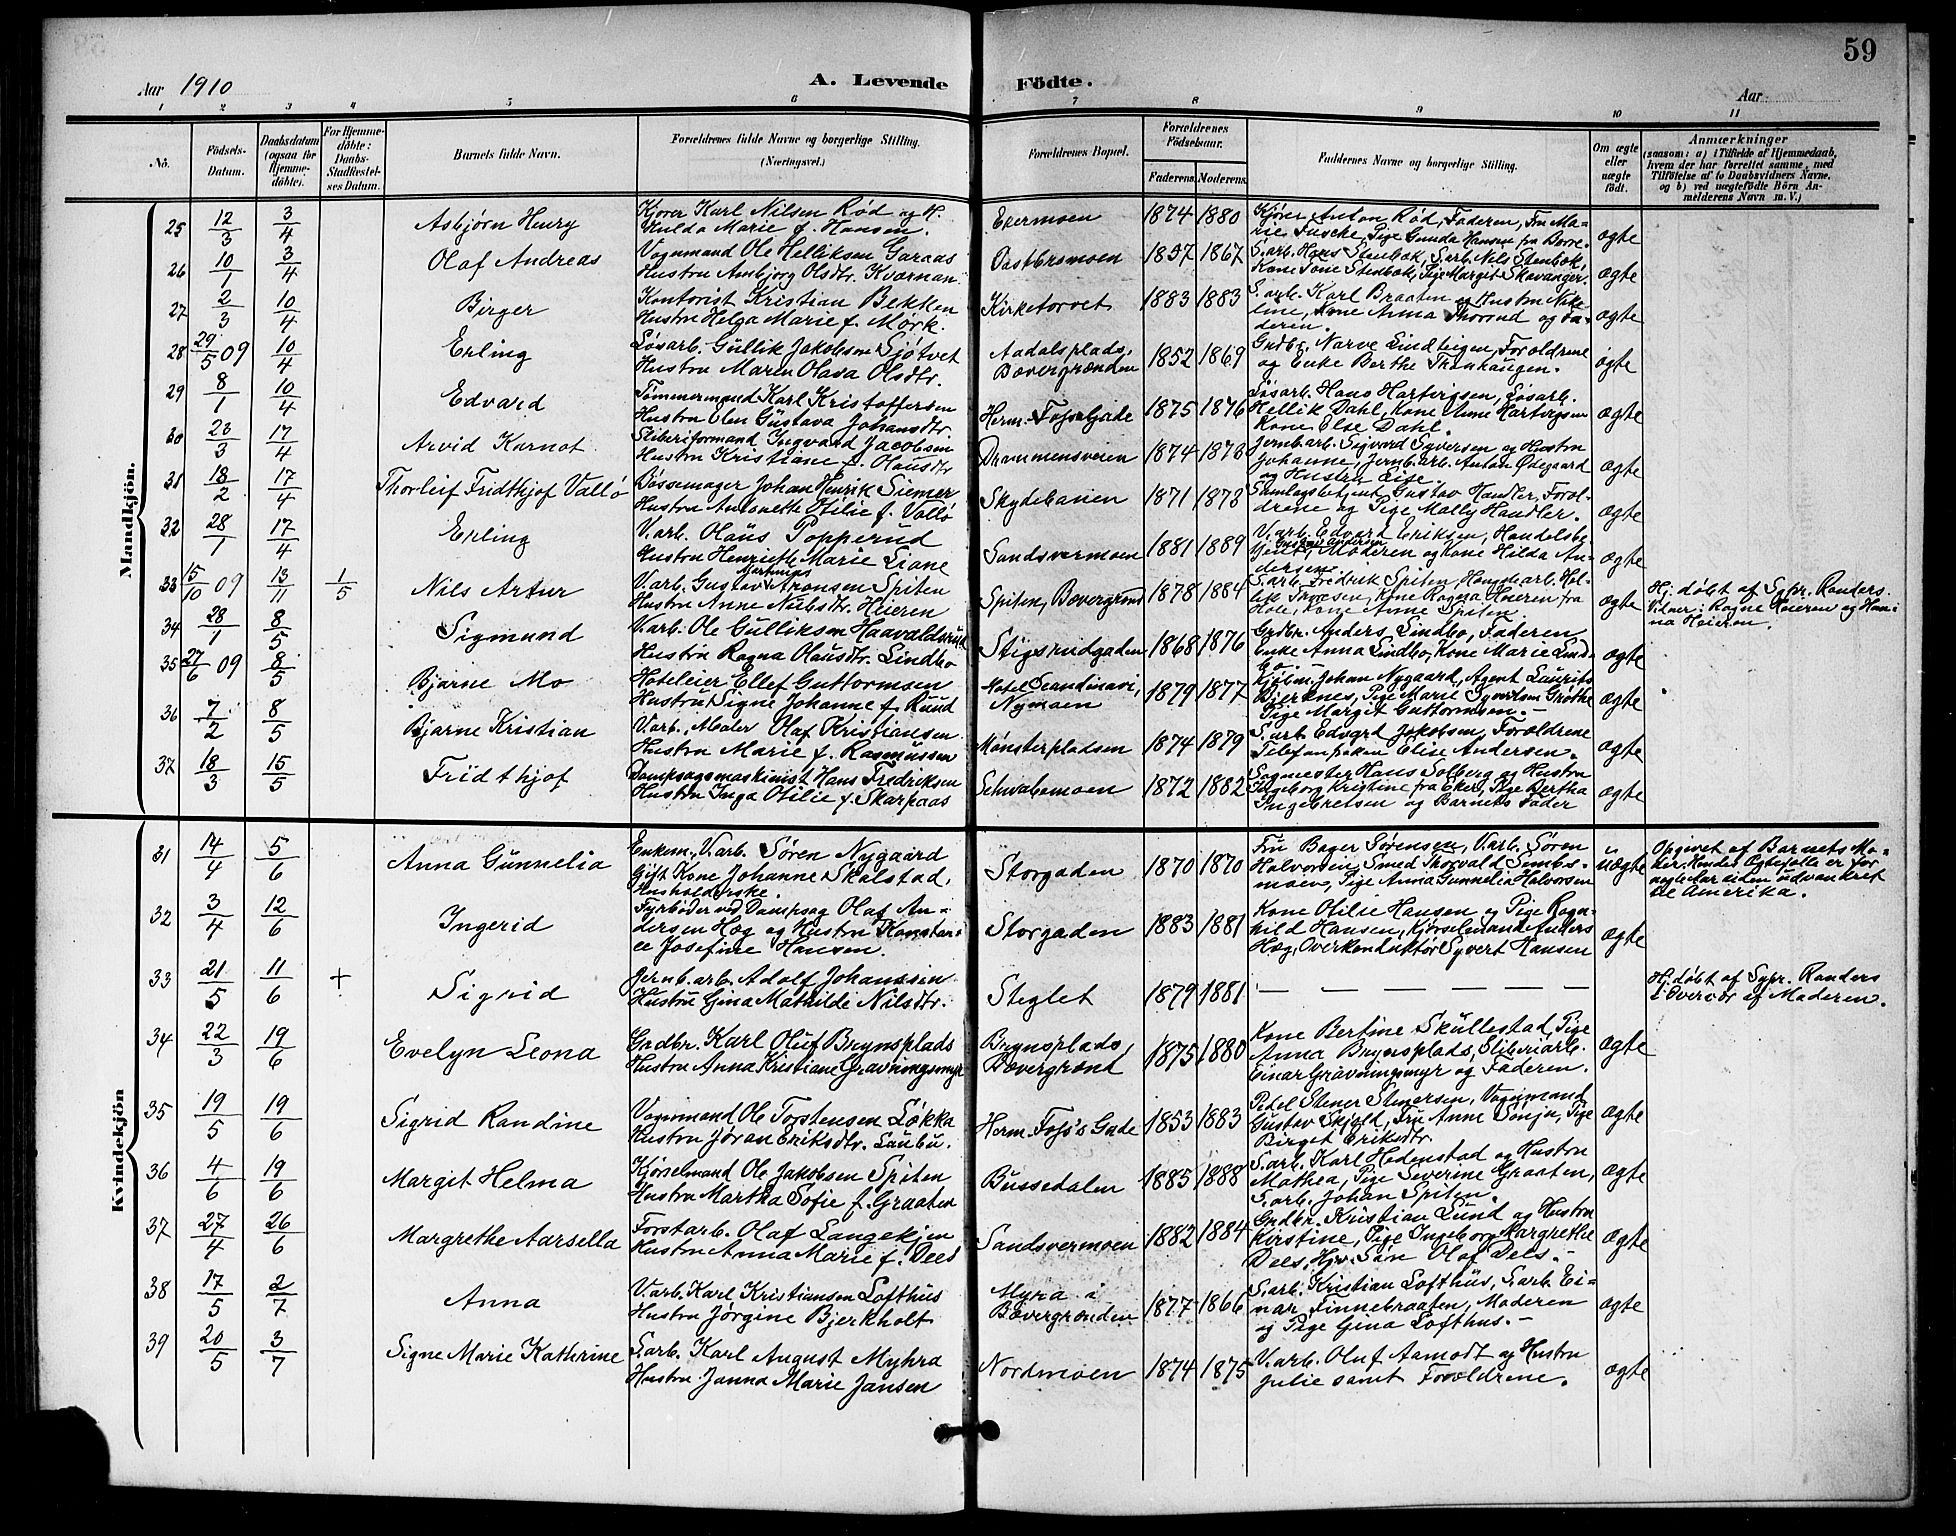 59
Aar 1910
A. Levende Födte.
Aar
1 2 3 4 5 6 7 8 9 10 11
No.
Födsels-Datum.
Daabsdatum (ogsaa for Hjemme-döbte).
For Hjemme-döbte: Daabs-Stadfæstel-ses Datum.
Barnets fulde Navn.
Forældrenes fulde Navne og borgerlige Stilling. (Næringsvei.)
Forældrenes Bopæl.
Forældrenes Födselsaar.
Faderens. Moderens.
Faddernes Navne og borgerlige Stilling.
Om ægte eller uægte födt.
Anmærkninger
(saasom: a) i Tilfælde af Hjemmedaab,
hvem der har forrettet samme, med
Tilföielse af to Daabsvidners Navne,
og b) ved uægtefödte Börn An-
melderens Navn m. V.)
Mandkjön.
25 12/3 3/4 Asbjørn Henry
Kjører Karl Nilsen Rød og H.
Hulda Marie f. Hansen.
Ekermoen 1874 1880
Kjører Anton Rød, Faderen, Fru Ma-
rie Fuscke, Pige Gunda Hansen fra Borre.
ægte
26 10/1 3/4 Olaf Andreas
Vognmand Ole Helliksen Garaas
Hustru Ambjørg Olsdtr. Kvarnan
1867
S.arb. Hans Stenbøk, S.arb. Nils Stenbøk,
Kone Tone Stenbøk, Pige Margit Skavanger.
ægte
27 2/3 10/4 Birger
Kontorist Kristian Bekken
Hustru Helga Marie f. Mørk.
Kirketorvet 1883 1883
S.arb. Karl Braaten og Hustru Niko-
line, Kone Anna Thorrud og Fa-
deren.
ægte
28 29/5 09 10/4 Erling
Løsarb. Gullik Jakobsen Sjøtvet
Hustru Maren Olava Olsdtr.
Aadalsplads, Bævergrænden 1852 1869
Grdbr. Narve Lindbeigen, Forældrene
og Enke Berthe Thonhaugen.
ægte
29 8/1 10/4 Edvard
Tømmermand Karl Kristoffersen
Hustru Olea Gustava Johansdtr.
Herm. Foss Gade 1875 1876
Løsarb. Hans Hartvigsen, Løsarb.
Hellik Dahl, Kone Anne Hartvigsen
Kone Else Dahl.
ægte
30 23/3 17/4 Arvid Karnot
Sliberiformand Ingvard Jacobsen
Hustru Kristiane f. Hansdtr.
Drammensveien 1874 1873
Jernb.arb. Sigvard Syversen og Hustru
Johanne, Jernb.arb. Anton Ødegaard
og Hustru Lise.
ægte
31 18/2 17/4 Thorleif Fridthjof Vallø
Bøssemager Johan Henrik Siemer
Hustru Antonette Otilie f. Vallø
Skydebanen 1871 1873
Samlagsbetjent Gustav Handler, Foræl-
drene og Pige Molly Handler.
ægte
32 28/1 17/4 Erling
V.arb. Olaus Popperud
Hustru Henriette Marie Liane
Sandsvermoen 1881 1889
V.arb. Edvard Eriksen, Handelsbe-
tjent Gustav Andersen, Moderen og Kone Hilda An-
dersen.
ægte
33 15/10 09 13/11 1/5 Nils Artur
V.arb. Gustav Aronsen Spiten
Hustru Anne Nilsdtr. Heieren
Spiten, Bævergrænd 1878 1884
S.arb. Fredrik Spiten, Haandarb. Hel-
lik Thoresen, Kone Ragna Heieren fra
Hole, Kone Anne Spiten.
ægte
Hj. døbt af Sypr. Randers.
Vidner: Ragna Heieren og Han-
na Heieren.
34 28/1 8/5 Sigmund
V.arb. Ole Gulliksen Haavaldsrud
Hustru Ragna Olausdtr. Lindbo
Stigsrudgaden 1868 1876
Grdbr. Anders Lindbo, Faderen,
Enke Anna Lindbo, Kone Marie Lind-
bo.
ægte
35 27/6 09 8/5 Bjarne Mo
Hoteleier Ellef Guttormsen
Hustru Signe Johanne f. Ruud
Hotel Scandinavi, Nymoen 1879 1877
Kjøbm. Johan Nygaard, Agent Laurits
Bjerknes, Pige Marie Syvertsen Grøthe
Pige Margit Guttormsen.
ægte
36 7/2 8/5 Bjarne Kristian
V.arb. Maler Olaf Kristiansen
Hustru Marie f. Rasmussen
Mønsterpladsen 1874 1879
S.arb. Edvard Jakobsen, Forældrene
Telefonfrøken Elise Andersen.
ægte
37 18/3 15/5 Fridthjof
Dampsagsmaskinist Hans Fredriksen
Hustru Inga Otilie f. Skarpaas
Schwabemoen 1872 1882
Sagmester Hans Solberg og Hustru
Ingeborg Kristine fra Eker, Pige Bertha
Ingebretsen og Barnets Fader
ægte
Kvindekjön
31 14/4 5/6 Anna Gunnelia
Enkem. V.arb. Søren Nygaard
Gift Kone Johanne Skalstad,
Husholderske.
Storgaden 1870 1870
Fru Bager Sørensen, V.arb. Søren
Halvorsen, Smed Thorvald Simbo-
moen, Pige Anna Gunnelia Halvorsen
uægte
Opgivet af Barnets Mo-
der. Hendes Ægtefælle er for
nogle Aar siden udvandret
til Amerika.
32 3/4 12/6 Ingerid
Fyrbøder ved Dampsag Olaf An-
dersen Hæg og Hustru Konstan-
ce Josefine Hansen.
Storgaden 1883 1881
Kone Otilie Hansen og Pige Ragn-
hild Hansen, Kjørselmand Anders
Hæg, Overkonduktør Syvert Hansen
ægte
33 21/5 11/6 + Sigrid
Jernb.arb. Adolf Johannsen
Hustru Gina Mathilde Nilsdtr.
Steglet 1879 1881
— — — — — — —
Hj. døbt af Sypr. Randers
i Overvær af Moderen.
34 22/3 19/6 Evelyn Leona
Grdbr. Karl Oluf Brynsplads
Hustru Anna Kristiane Gravningsmyr
Brynsplads, Bævergrænd 1875 1880
Kone Bertine Skullestad, Pige
Anna Brynsplads, Sliberiarb.
Einar Gravningsmyr og Faderen.
ægte
35 19/5 19/6 Sigrid Randine
Vognmand Ole Torstensen Løkka
Hustru Jøran Eriksdtr. Laubu.
Herm. Foss's Gade 1853 1883
Pedel Stener Stenersen, Vognmand
Gustav Skjold, Fru Anne Sønju, Pige
Birget Eriksdtr.
ægte
36 4/6 19/6 Margit Helma
Kjørselmand Ole Jakobsen Spiten
Hustru Martha Sofie f. Graaten
Bussedalen 1885 1888
S.arb. Karl Hedenstad og Hustru
Mathea, Pige Severine Graaten,
S.arb. Johan Spiten.
ægte
37 27/4 26/6 Margrethe Aarsella
Forstarb. Olaf Langekjen
Hustru Anna Marie f. Dees
Sandsvermoen 1882 1884
Grdbr. Kristian Lund og Hustru
Kirstine, Pige Ingeborg Margrethe
Dees, Hjv. Søn Olaf Dees.
ægte
38 17/5 2/7 Anna
V.arb. Karl Kristiansen Lofthus
Hustru Jørgine Bjerkholt
Myra i Bævergrænden 1877 1866
S.arb. Kristian Lofthus, S.arb. Ei-
nar Finnebraaten, Moderen
og Pige Gina Lofthus.
ægte
39 20/5 3/7 Signe Marie Kathrine
S.arb. Karl August Myhra
Hustru Janna Marie Jansen
Nordmoen 1874 1875
V.arb. Oluf Aamodt og Hustru
Julie samt Forældrene.
ægte